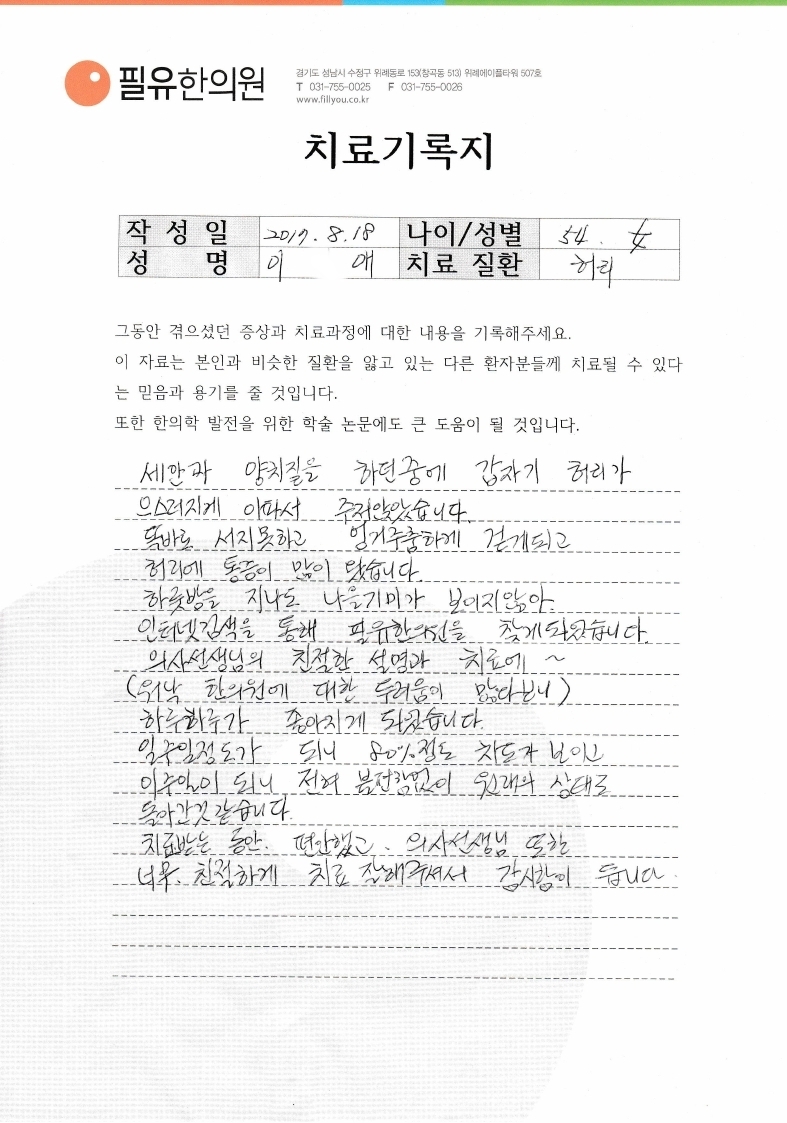 필유한의원
경기도 성남시 수정구 위례동로 153(창곡동 513) 위례에이플타워 507호
T 031-755-0025 F 031-755-0026
www.fillyou.co.kr
치료기록지
작 성 일 2017. 8. 18 나이/성별 54. 女
성 명 이 애 치료 질환 허리
그동안 겪으셨던 증상과 치료과정에 대한 내용을 기록해주세요.
이 자료는 본인과 비슷한 질환을 앓고 있는 다른 환자분들께 치료될 수 있다
는 믿음과 용기를 줄 것입니다.
또한 한의학 발전을 위한 학술 논문에도 큰 도움이 될 것입니다.
세안과 양치질을 하던중에 갑자기 허리가
으스러지게 아파서 주저앉았습니다.
똑바로 서지못하고 엉거주춤하게 걷게되고
허리에 통증이 많이 왔습니다.
하룻밤을 지나도 나을기미가 보이지않아.
인터넷검색을 통해 필유한의원을 찾게되었습니다.
의사선생님의 친절한 설명과 치료에 ~
(워낙 한의원에 대한 두려움이 많다보니)
하루하루가 좋아지게 되었습니다.
일주일정도가 되니 80%정도 차도가 보이고
이주일이 되니 전혀 불편함없이 원래의 상태로
돌아간것 같습니다.
치료받는 동안. 편안했고. 의사선생님 또한
너무. 친절하게 치료 잘해주셔서 감사함이 듭니다.